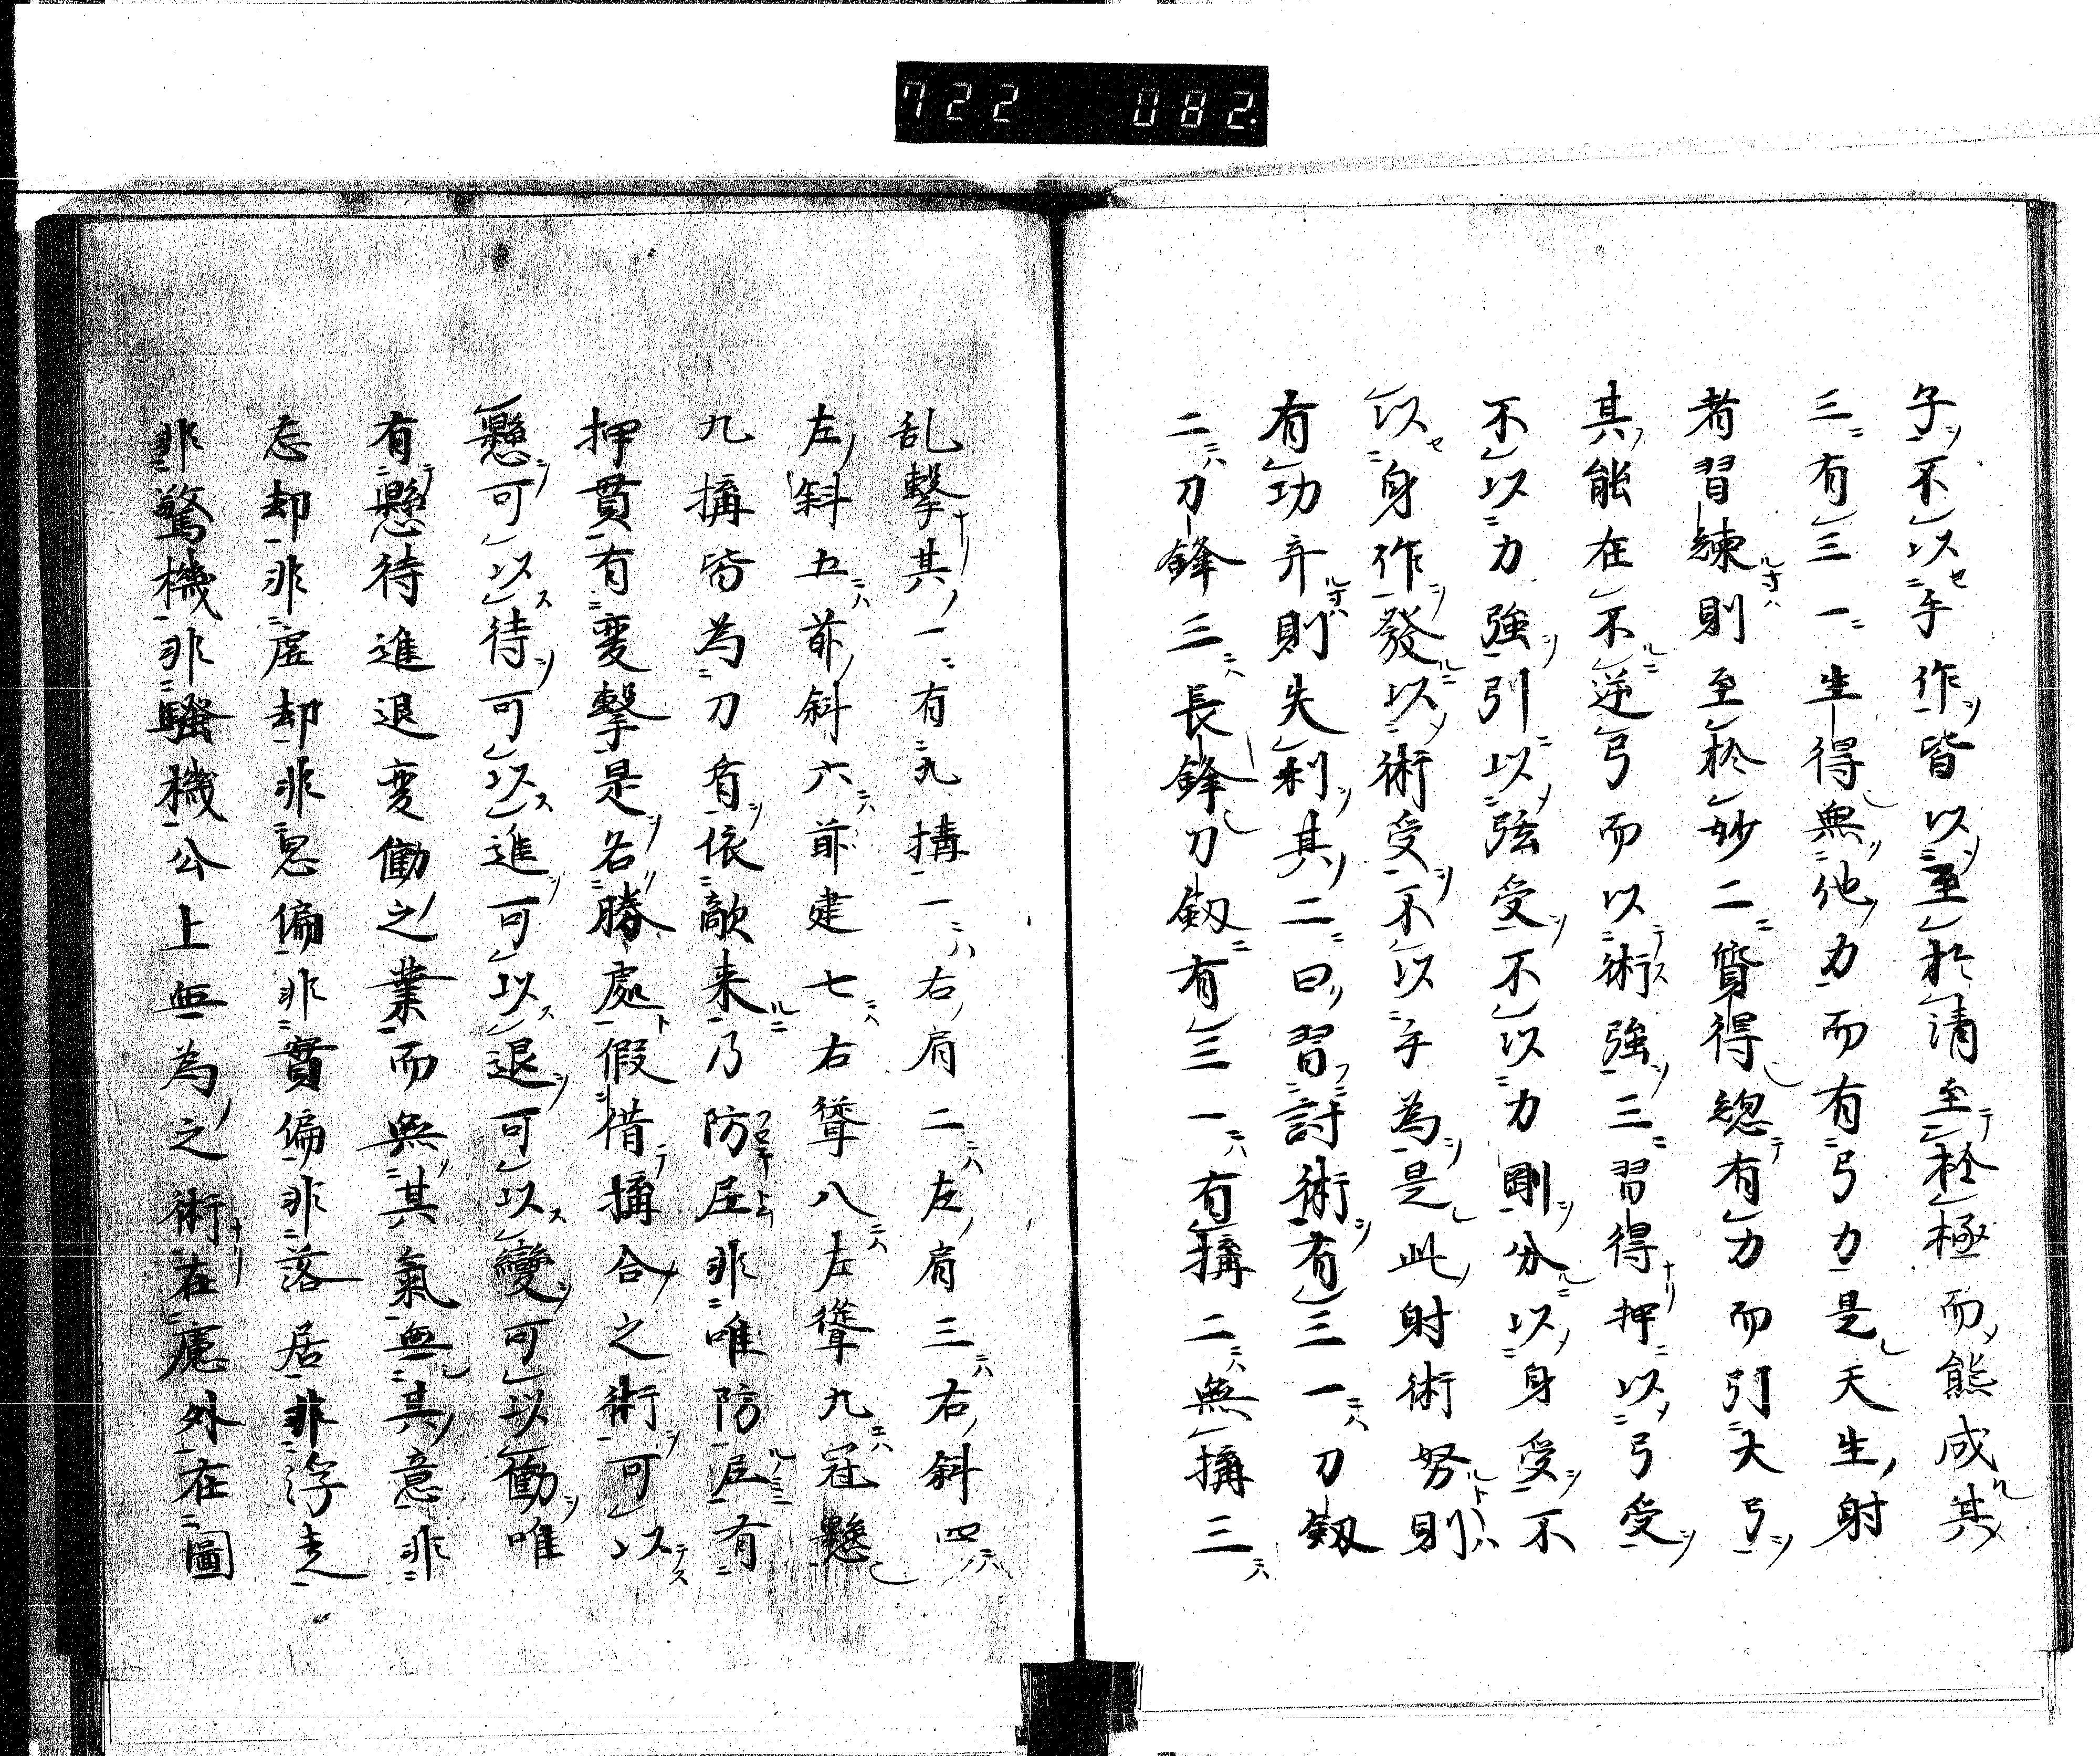 722 082.
子不以手作皆以至於清至於極而熊成其
三有三一生得無他力而有弓力是天生射
者習練則至於妙二質得惣有力而引大弓
其能在不逆弓而以術強三習得押以弓受
不以力強引以弦受不以力剛分以身受不
以身作發以術受不以手為是此射術努則
有功弃則失利其二曰習討術有三一刀釼
二刀鋒三長鋒刀釼有三一有搆二無搆三
乱擊其一有九搆一右肩二左肩三右斜四
左斜五前斜六前建七右聳八左聳九冠懸
九搆皆為刀有依敵来乃防圧非唯防圧有
押貫有変擊是名勝處假借搆合之術可以
懸可以待可以進可以退可以變可以働唯
有懸待進退変働之業而無其氣無其意非
忘却非虚却非忽偏非實偏非落居非浮走
非驚機非騒機公上無為之術在慮外在圖